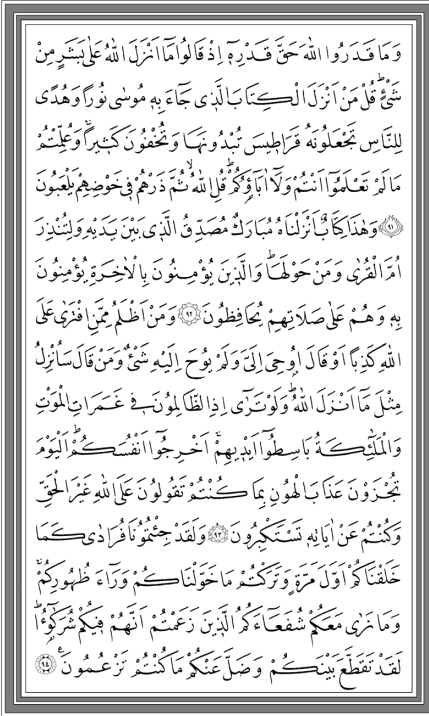 وَمَا قَدَرُوا اللّٰهَ حَقَّ قَدْرِهِٓ اِذْ قَالُوا مَٓا اَنْزَلَ اللّٰهُ عَلٰى بَشَرٍ مِنْ
شَيْءٍۜ قُلْ مَنْ اَنْزَلَ الْكِتَابَ الَّذ۪ي جَٓاءَ بِه۪ مُوسٰى نُورًا وَهُدًى
لِلنَّاسِ تَجْعَلُونَهُ قَرَاط۪يسَ تُبْدُونَهَا وَتُخْفُونَ كَث۪يرًاۚ وَعُلِّمْتُمْ
مَا لَمْ تَعْلَمُٓوا اَنْتُمْ وَلَٓا اٰبَٓاؤُ۬كُمْۜ قُلِ اللّٰهُۙ ثُمَّ ذَرْهُمْ ف۪ي خَوْضِهِمْ يَلْعَبُونَ
﴿٩١﴾ وَهٰذَا كِتَابٌ اَنْزَلْنَاهُ مُبَارَكٌ مُصَدِّقُ الَّذ۪ي بَيْنَ يَدَيْهِ وَلِتُنْذِرَ
اُمَّ الْقُرٰى وَمَنْ حَوْلَهَاۜ وَالَّذ۪ينَ يُؤْمِنُونَ بِالْاٰخِرَةِ يُؤْمِنُونَ
بِه۪ وَهُمْ عَلٰى صَلَاتِهِمْ يُحَافِظُونَ ﴿٩٢﴾ وَمَنْ اَظْلَمُ مِمَّنِ افْتَرٰى عَلَى
اللّٰهِ كَذِبًا اَوْ قَالَ اُو۫حِيَ اِلَيَّ وَلَمْ يُوحَ اِلَيْهِ شَيْءٌ وَمَنْ قَالَ سَاُنْزِلُ
مِثْلَ مَٓا اَنْزَلَ اللّٰهُۜ وَلَوْ تَرٰٓى اِذِ الظَّالِمُونَ ف۪ي غَمَرَاتِ الْمَوْتِ
وَالْمَلٰٓئِكَةُ بَاسِطُٓوا اَيْد۪يهِمْۚ اَخْرِجُٓوا اَنْفُسَكُمْۜ اَلْيَوْمَ
تُجْزَوْنَ عَذَابَ الْهُونِ بِمَا كُنْتُمْ تَقُولُونَ عَلَى اللّٰهِ غَيْرَ الْحَقِّ
وَكُنْتُمْ عَنْ اٰيَاتِه۪ تَسْتَكْبِرُونَ ﴿٩٣﴾ وَلَقَدْ جِئْتُمُونَا فُرَادٰى كَمَا
خَلَقْنَاكُمْ اَوَّلَ مَرَّةٍ وَتَرَكْتُمْ مَا خَوَّلْنَاكُمْ وَرَٓاءَ ظُهُورِكُمْۚ
وَمَا نَرٰى مَعَكُمْ شُفَعَٓاءَكُمُ الَّذ۪ينَ زَعَمْتُمْ اَنَّهُمْ ف۪يكُمْ شُرَكٰٓؤُ۬اۜ
لَقَدْ تَقَطَّعَ بَيْنَكُمْ وَضَلَّ عَنْكُمْ مَا كُنْتُمْ تَزْعُمُونَ۟ ﴿٩٤﴾